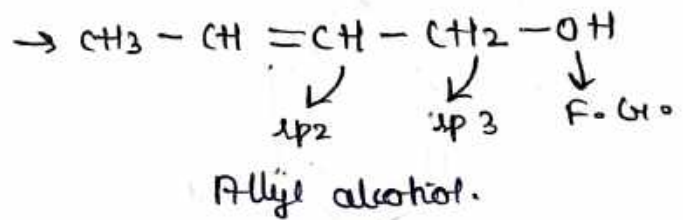 → CH3 - CH = CH - CH2 - OH
sp2 sp3 F.G.
Allyl alcohol.